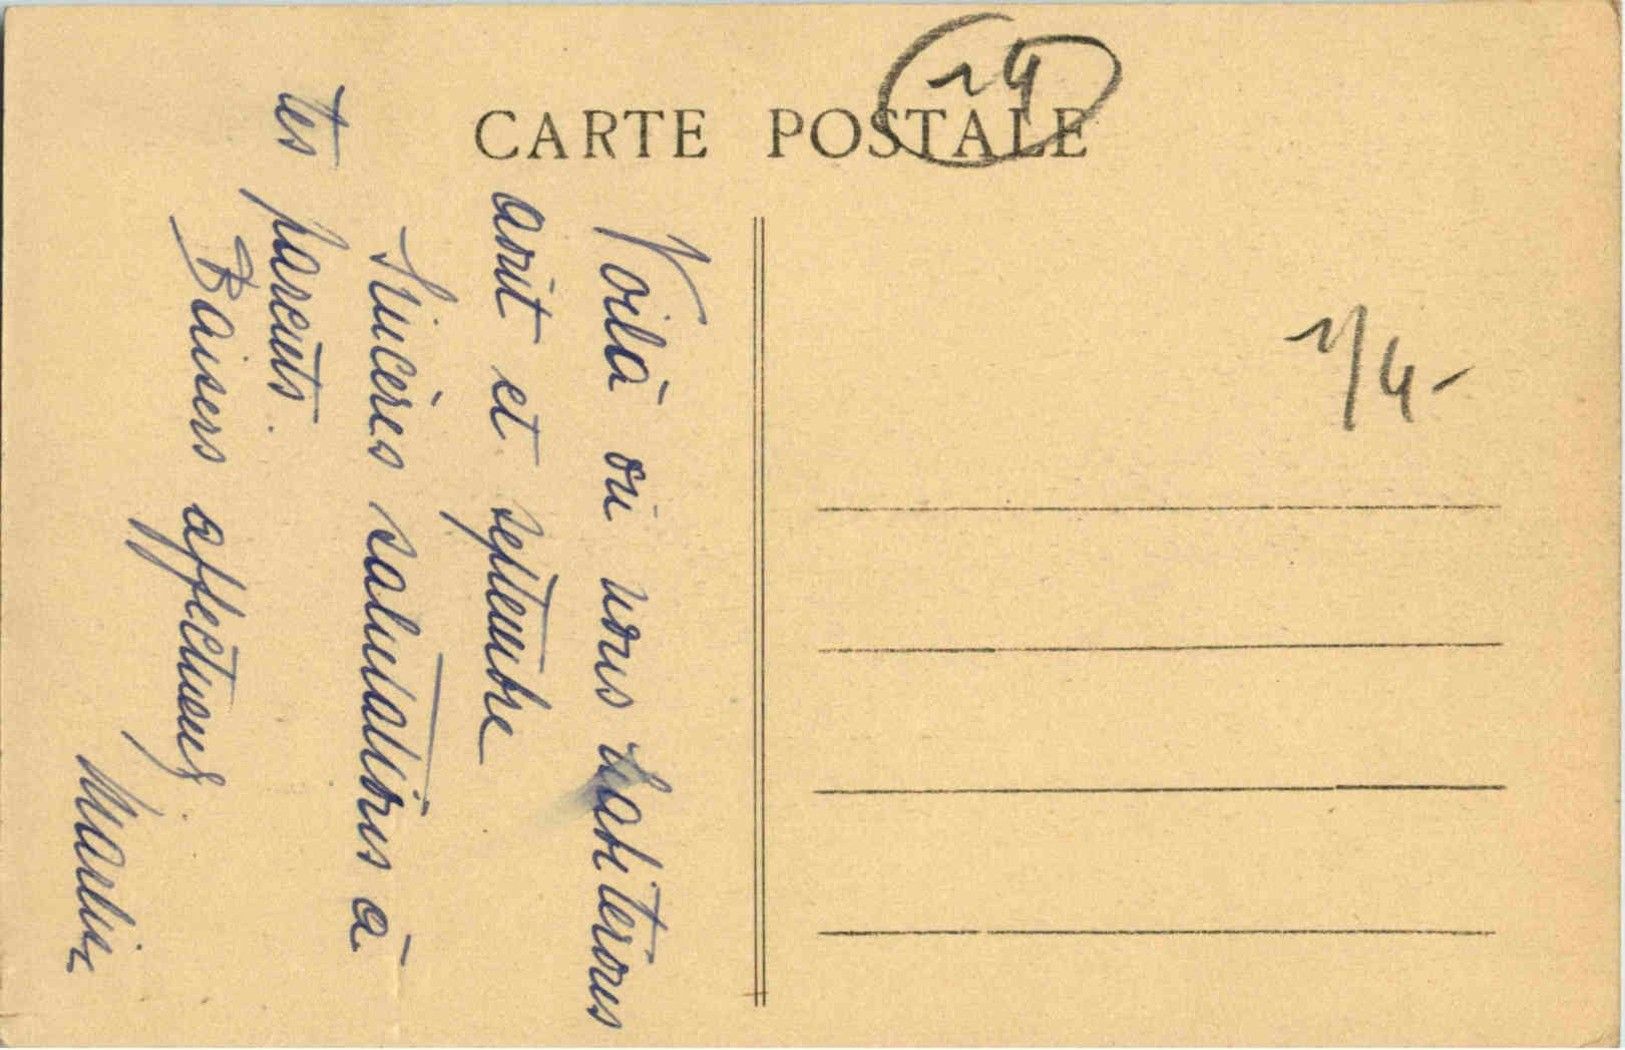 CARTE POSTALE
Voilà où nous habiterons
août et septembre
Sincères salutations à
tes parents.
Baisers affectueux
14
1/4-